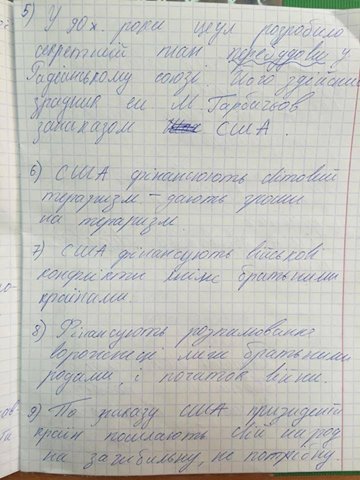 5) У 90х. роки цеул розробило
секретний план перевдову у
Радянському союзі. Його здійснив
зрадник ем М. Гарбичьов
за наказом США.
6) США фінансюють світовий
тераризм – дають гроши
на тераризм
7) США фінансують військові
конфлікти між братьніми
країнами.
8) Фінансують розпалювання
ворожнеці між братьніми
родами, і початок війни.
9) По приказу США призиденти
країн посилають свій народ
на загибильну, не потрібну.